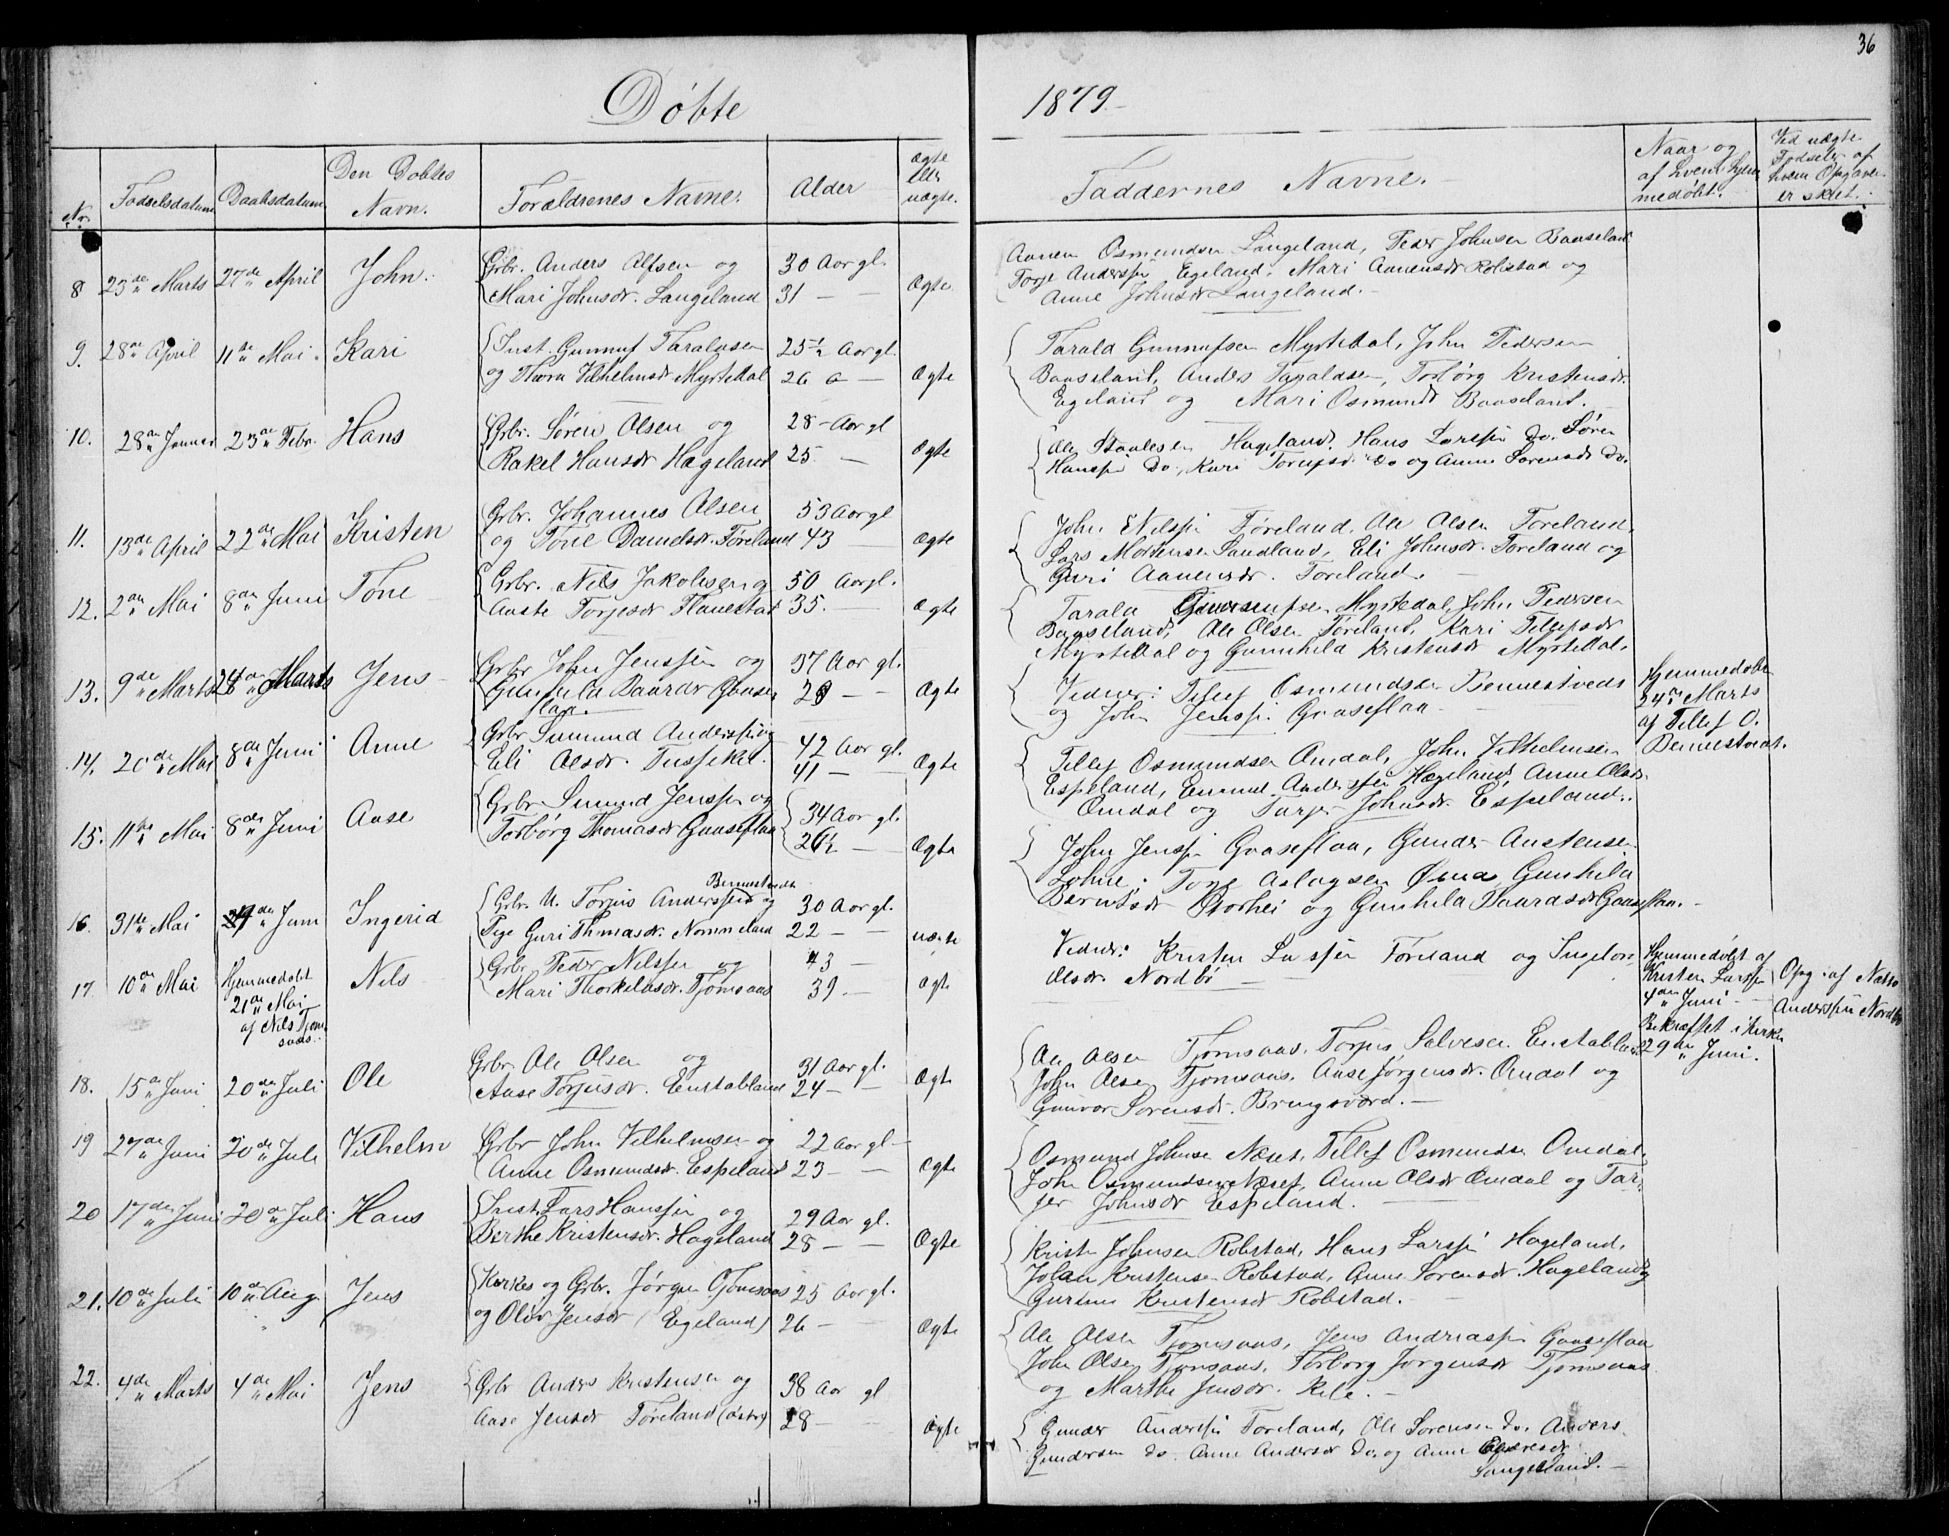 36
Døbte
1879.
Nr.
Fødselsdatum
Daabsdatum
Den Døbtes
Navn.
Forældrenes Navne.
Alder
Ægte
eller
uægte.
Faddernes Navne.
Naar og
af hvem hjem
medøbt.
Ved uægte
Fødseler af
hvem Opgaven
er skeet.
8 23de Marts 27de April John. Grbr. Anders Alfsen og 30 Aar gl.
Mari Johnsdr. Langeland 31 — Ægte
Aanen Osmundsen Langeland, Peder Johnsen Baaseland
Torje Anderssen Egeland, Mari Aanensdr Robstad og
Anne Johnsdr Langeland.
9. 28de April 11te Mai. Kari Inst. Gunnuf Taraldsen 25½ Aar gl.
og Thora Vilhelmsdr Myrtedal 26 — Ægte
Tarald Gunnufsen Myrtedal, John Pedersen
Baaseland, Anders Taraldsen, Torbørg Kristensdr.
Egeland og Mari Osmundsdr Baaseland.
10. 28de Januar 23de Febr. Hans Grbr. Søren Olsen og 28 — Aar gl
Rakel Hansdr Hægeland 25 — Ægte
Ole Staalesen Hægeland, Hans Larssen Do. Søren
Hanssen Do., Kari Do og Anne Sørensdr Do.
11. 13de April 22de Mai Kristen Grbr. Johannes Olsen 53 Aar gl
og Tone Danielsdr. Føreland 43 — Ægte
John Nilssen Føreland, Ole Olsen Føreland,
Lars Mortensen Sandland, Eli Johnsdr. Føreland og
Guri Aanensdr. Føreland.
12. 2den Mai 8de Juni Tone Grbr. Nils Jakobsen og 50 Aar gl.
Aaste Torjesdr Flanestad 35. Ægte
Tarald Gunnufsen Myrtedal, John Pedersen
Baaseland, Ole Olsen Føreland, Kari Tellefsdr
Myrtedal og Gunnhild Kristensdr Myrtedal.
13. 9de Marts 24de Marts Jens Grbr John Jenssen og 37 Aar gl.
Gunhild Baardsdr Gaase 28 — Ægte
flaa.
Vidner: Tellef Osmundsen Bennestvedt
og John Jenssen Gaaseflaa
Hjemmedøbt
24de Marts
af Tellef O.
Bennestvedt.
14. 20de Mai 8de Juni Anne Grbr Emund Anderssen og 42 Aar gl.
Eli Olsdr. Tussekal. 41 — Ægte
Tellef Osmundsen Omdal, John Vilhelmsen
Espeland, Emund Anderssen Hægeland, Anne Olsdr.
Omdal og Tarjer Johnsdr. Espeland.
15. 11te Mai 8de Juni Aase Grbr Emund Jenssen og 34 Aar gl.
Torbørg Thomasdr Gaaseflaa 26½ — Ægte
John Jenssen Gaaseflaa, Gunder Austensen
Lohne, Tore Aslagsen Øina Gunhild
Berntsdr Storhei og Gunhild Baardsdr Gaaseflaa.
16. 31te Mai Juni Ingerid Grbr. U. Torjus Anderssen Bennestvedt og 30 Aar gl.
Pige Guri Thomasdr. Nommeland 22 — uægte
Vidner: Kristen Larssen Føreland og Ingebor
Olsdr. Nordbø
Hjemmedøbt af
Kristen Larssen
4de Juni
Bekræftet i Kirke
29de Juni.
Opg. af
Anderssen Nordbø
17 10de Mai Hjemmedøbt Nils Grbr Peder Nilssen og 43 —
21de Mai Mari Thorkelsdr. Tjomsaas 39. — Ægte
af Nils Tjom
saas.
Ole Olsen Tjomsaas, Torjus Salvesen Eenstabland
John Olsen Tjomsaas, Aase Jørgensdr. Omdal og
Gunvor Sørensdr. Bringsværd.
18. 15de Juni 20de Juli Ole Grbr. Ole Olsen og 31 Aar gl.
Aase Torjusdr. Eenstabland 24 — Ægte
19 27de Juni 20de Juli Vilhelm Grbr John Vilhelmsen og 22 Aar gl
Anne Osmundsdr. Espeland 23 — Ægte
Osmund Johnsen Næset, Tellef Osmundsen Omdal,
John Osmundsen Næset, Anne Olsdr Omdal og Tar
jer Johnsdr Espeland.
20 17de Juni 20de Juli Hans Inst. Lars Hanssen og 29 Aar gl.
Berthe Kristensdr. Hægeland 28 — Ægte
Kristen Johnsen Robstad, Hans Larssen Hægeland,
Johan Kristensen Robstad, Anne Sørensdr. Hægeland og
Kristensdr Robstad.
21. 10de Juli 10de Aug. Jens Kirkes og Grbr. Jørgen O. Tjomsaas 25 Aar gl.
og Olov Jensdr (Egeland) 26 — Ægte
Ole Olsen Tjomsaas, Jens Andreassen Gaaseflaa
John Olsen Tjomsaas, Torborg Jørgensdr Tjomsaas
og Marthe Jensdr. Kile.
22. 4de Marts 4de Mai Jens Grbr Anders Kristensen og 38 Aar gl
Aase Jensdr Føreland (østre) 28 — Ægte
Gunder Anderssen Føreland, Ole Sørensen Do, Anders
Gundersen Do. Anne Andersdr Do. og Anne
Langeland.